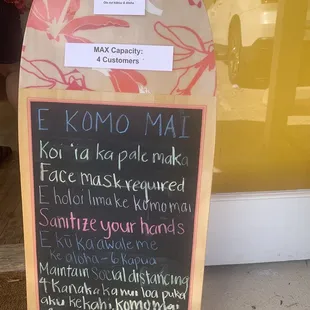 E KOMO MAI
MAX Capacity:
4 Customers
E KOMO MAI
Koi 'ia ka pale maka
Face mask required
E holoi lima ke komo mai
Sanitize your hands
E kū kaawale me
ke aloha - 6 kapuai
Maintain Social distancing
4 Kanaka ka nui loa
aku kekahi, komo mai